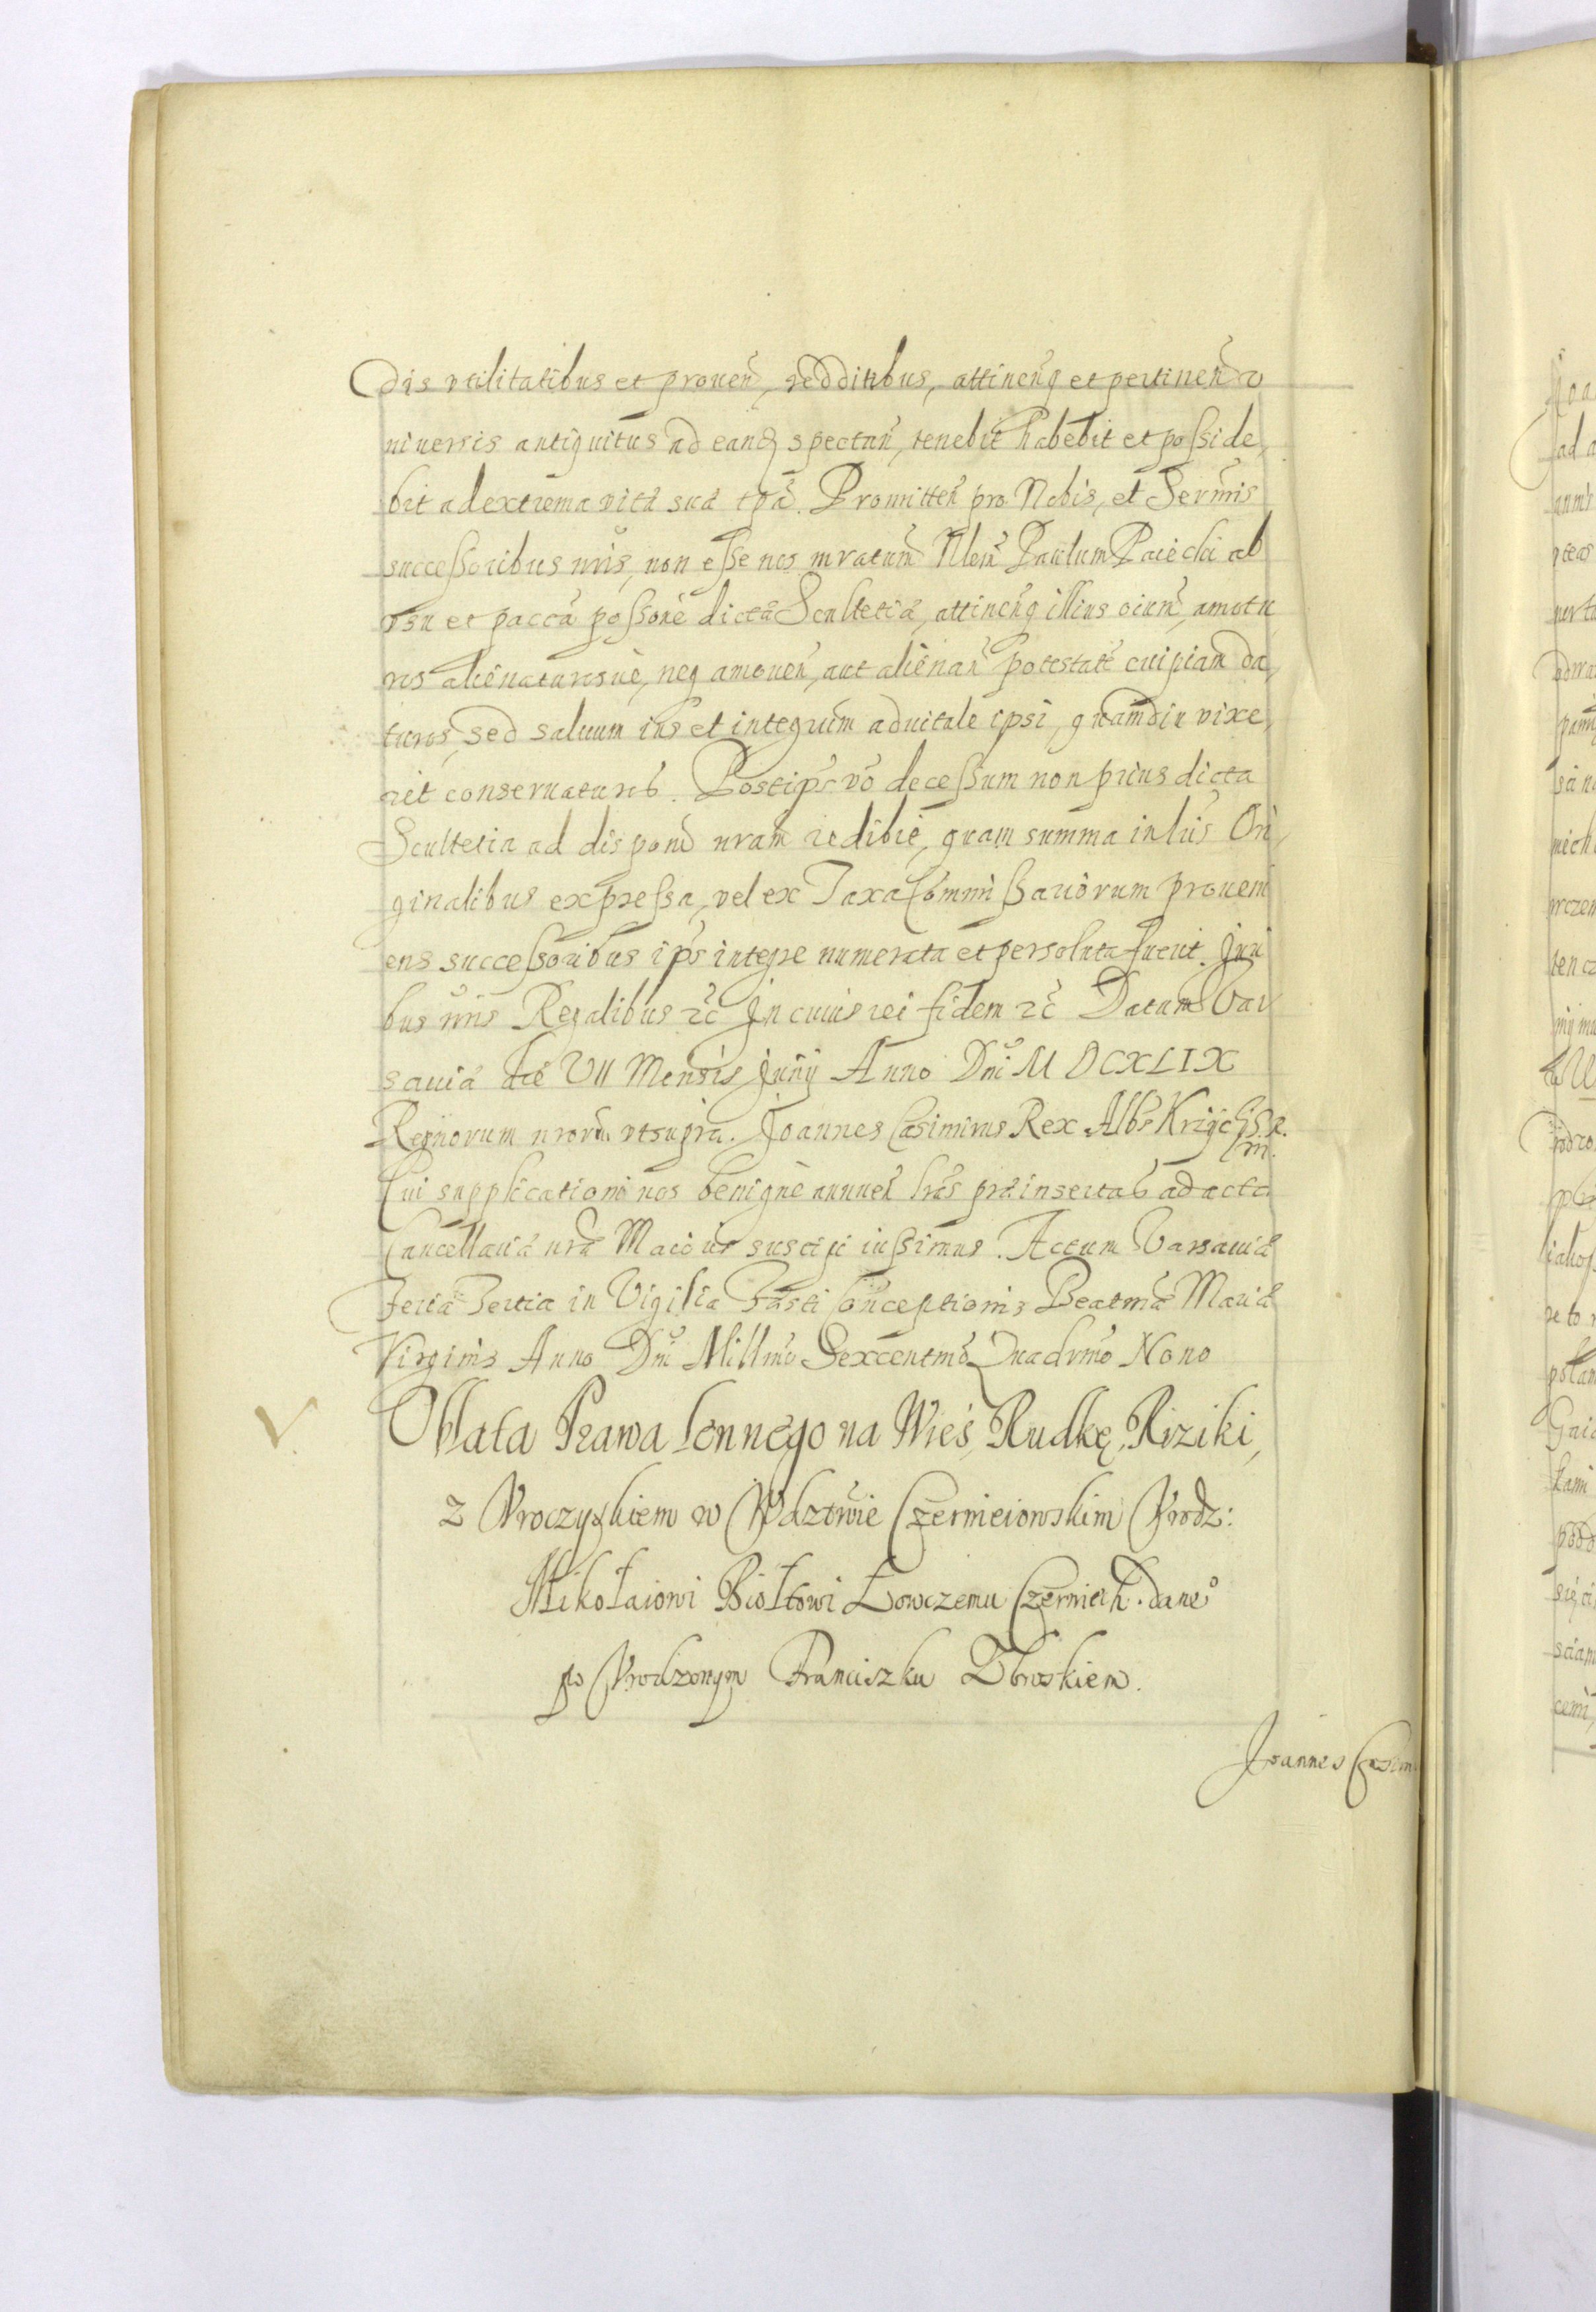 dis vtilitatibus et prouen, redditibus, attinenq et pertinen v
niuersis antiquitus ad eandq spectan, tenebit habebit et posside,
bit ad extrema vitæ suæ tpa. Promitten pro Nobis, et Sermis
successoribus nris, non esse nos mraturu Nlem Paulum Paiecki ab
vsu et pacca possone dictæ Scultetiæ, attinenq illius oium, amotu
ros alienaturosue, neq amouen, aut alienan potestate cuipiam da,
turos, sed saluum ius et integrum aduitale ipsi, quamdiu vixe,
rit conseruaturos. Post ips vo decessum non prius dicta
Scultetia ad dispond nram redibit, quam summa in lris Ori,
ginalibus expressa, vel ex Taxa Commissariorum proueni
ens successoribus ips integre numerata et persoluta fuerit. Juri
bus nris Regalibus rc̃ Jn cuius rei fidem rc̃ Datum Var
sauiæ die VII Mensis Junij Anno Dni MDCXLIX
Regnorum nrorū vt supra. Joannes Casimirus Rex Albs Krzyc S. R.
m.
Cui supplicationi nos benigne annuen lras præinsertas ad acta
Cancellariæ nræ Maioris suscipi iussimus. Actum Varsauiæ
Feria Tertia in Vigilia Festi Conceptionis Beatmæ Mariæ
Virginis Anno Dni Millmo Sexcentmo Quadrmo Nono
Oblata Prawa lennego na Wieś, Rudkę, Rziki,
z Vroczyskiem w Wdztwie Czernieiowskim Vrodz:
Mikołaiowi Biołtowi Łowczemu Czerniech. dane°
po Vrodzonym Franciszku Zbroskiem.
Joannes Casim